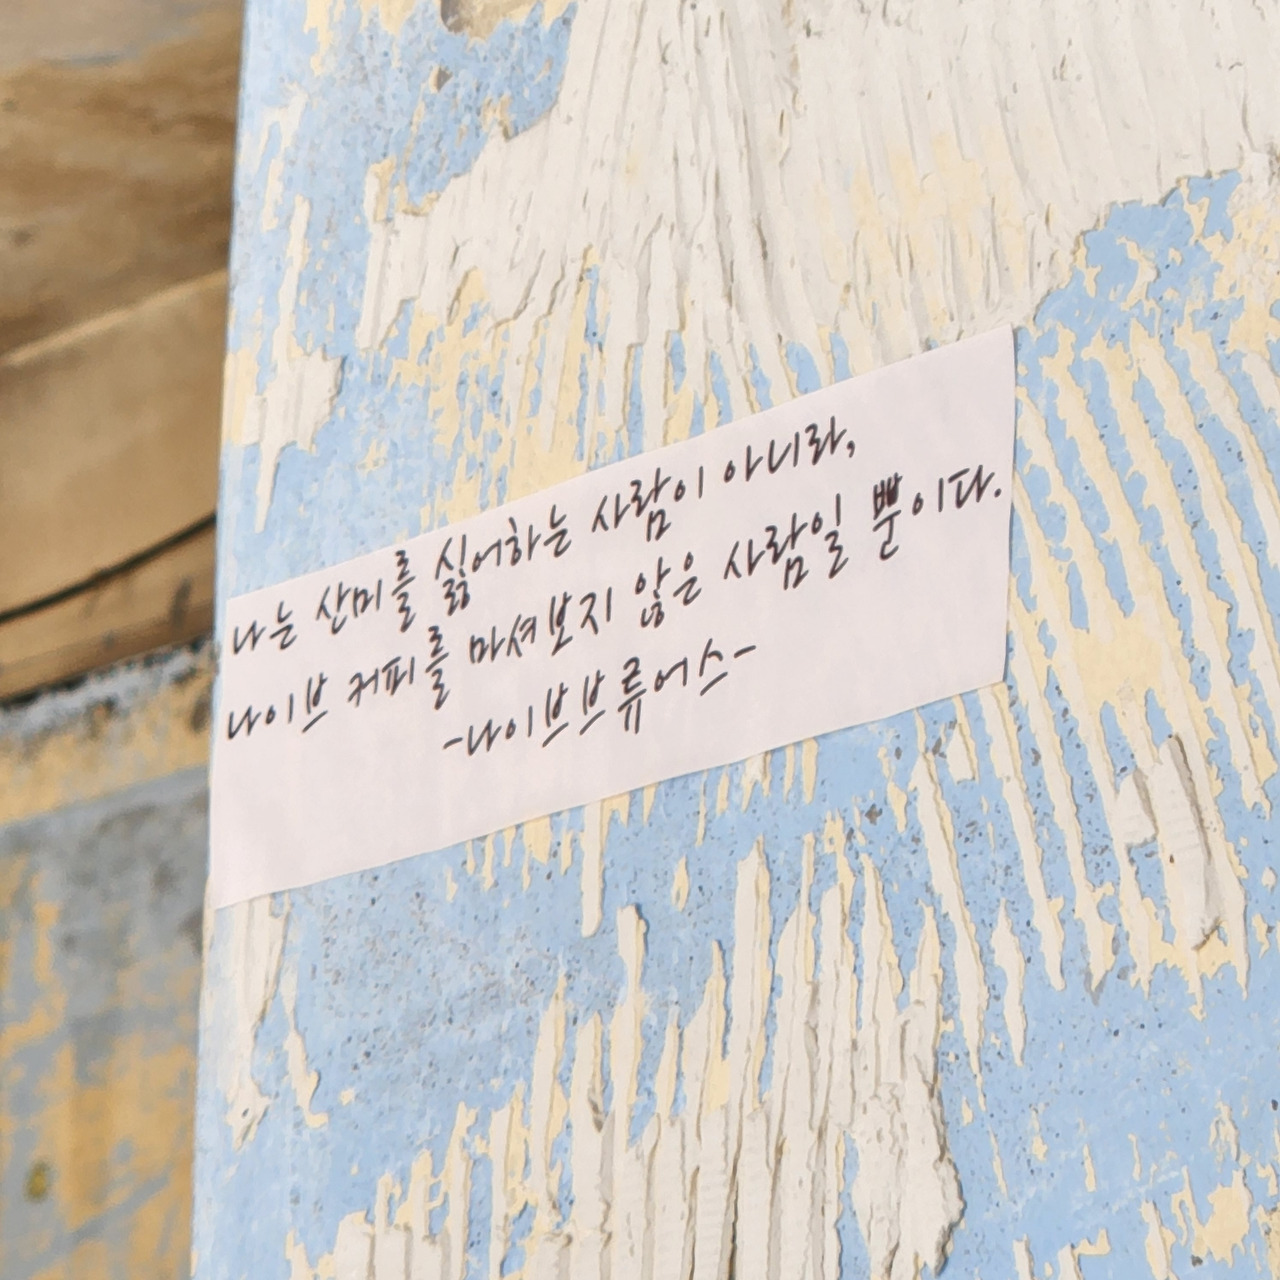 나는 산미를 싫어하는 사람이 아니라,
나이브 커피를 마셔보지 않은 사람일 뿐이다.
-나이브브류어스-